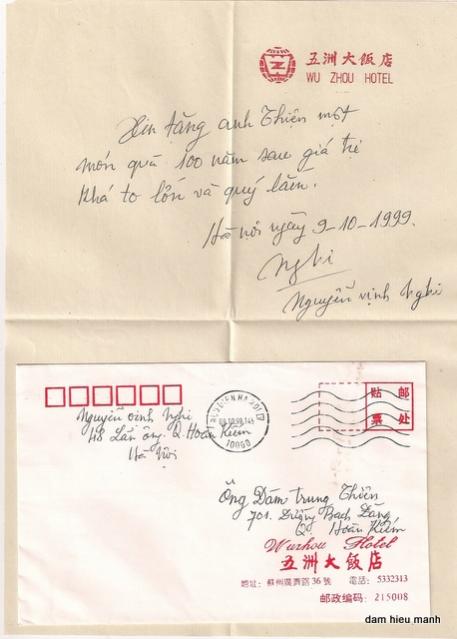 五洲大飯店
WU ZHOU HOTEL
Xin tặng anh Thiện một
món quà 100 năm sau giá trị
khá to lớn và quý lắm.
Hà nội ngày 9-10-1999.
Nghi
Nguyễn vịnh Nghi
Nguyễn vịnh Nghi
48 Lãn ông. Q. Hoàn Kiếm
Hà Nội
10060
贴 邮
票 处
Ông Đàm trung Thiện
701. Đường Bạch Đằng
Q. Hoàn Kiếm
Wuzhou Hotel
五洲大飯店
地址: 蘇州廣濟路36號 電話: 5332313
邮政编码: 215008
dam hieu manh